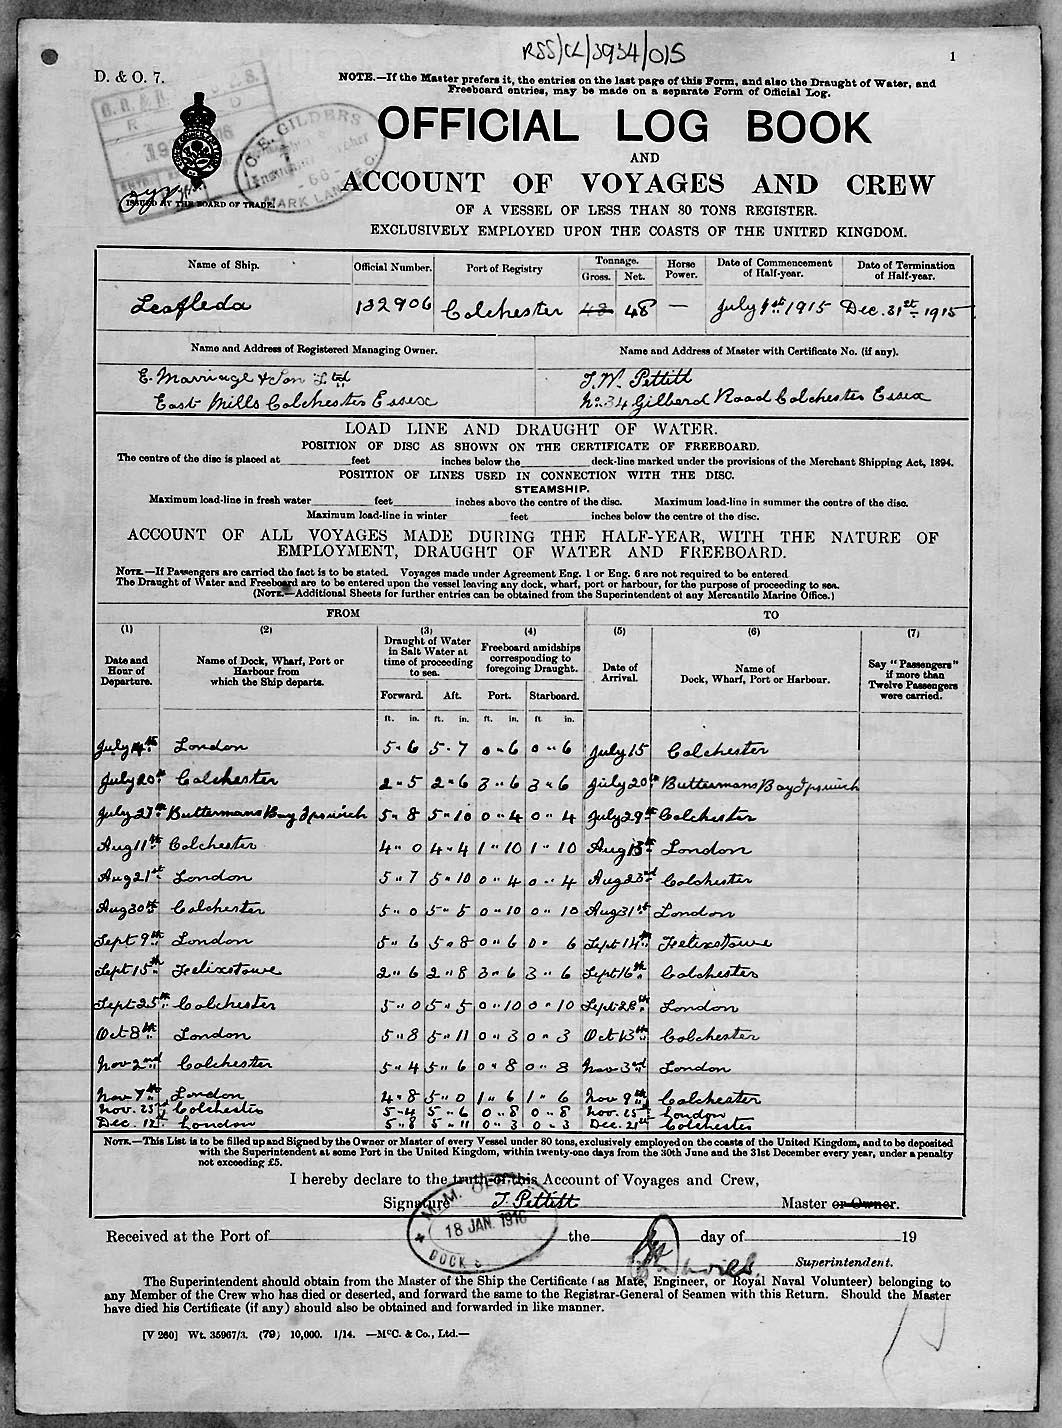 RSS/CL/3934/015
1
D. & O. 7.
NOTE.—If the Master prefers it, the entries on the last page of this Form, and also the Draught of Water, and
Freeboard entries, may be made on a separate Form of Official Log.
OFFICIAL LOG BOOK
AND
ACCOUNT OF VOYAGES AND CREW
ISSUED BY THE BOARD OF TRADE.
OF A VESSEL OF LESS THAN 80 TONS REGISTER.
EXCLUSIVELY EMPLOYED UPON THE COASTS OF THE UNITED KINGDOM.
C. E. GILDERS
MARK LANE
Name of Ship. Official Number. Port of Registry Tonnage. Gross. Net. Horse Power. Date of Commencement of Half-year. Date of Termination of Half-year.
Leofleda 132906 Colchester 48 48 — July 1st 1915 Dec. 31st 1915
Name and Address of Registered Managing Owner. Name and Address of Master with Certificate No. (if any).
E. Marriage & Son Ltd T.W. Pettitt
East Mills Colchester Essex No. 34 Gilberd Road Colchester Essex
LOAD LINE AND DRAUGHT OF WATER.
POSITION OF DISC AS SHOWN ON THE CERTIFICATE OF FREEBOARD.
The centre of the disc is placed at feet inches below the deck-line marked under the provisions of the Merchant Shipping Act, 1894.
POSITION OF LINES USED IN CONNECTION WITH THE DISC.
STEAMSHIP.
Maximum load-line in fresh water feet inches above the centre of the disc. Maximum load-line in summer the centre of the disc.
Maximum load-line in winter feet inches below the centre of the disc.
ACCOUNT OF ALL VOYAGES MADE DURING THE HALF-YEAR, WITH THE NATURE OF
EMPLOYMENT, DRAUGHT OF WATER AND FREEBOARD.
NOTE.—If Passengers are carried the fact is to be stated. Voyages made under Agreement Eng. 1 or Eng. 6 are not required to be entered
The Draught of Water and Freeboard are to be entered upon the vessel leaving any dock, wharf, port or harbour, for the purpose of proceeding to sea.
(NOTE.—Additional Sheets for further entries can be obtained from the Superintendent of any Mercantile Marine Office.)
FROM TO
(1) (2) (3) (4) (5) (6) (7)
Date and Hour of Departure. Name of Dock, Wharf, Port or Harbour from which the Ship departs. Draught of Water in Salt Water at time of proceeding to sea. Freeboard amidships corresponding to foregoing Draught. Date of Arrival. Name of Dock, Wharf, Port or Harbour. Say "Passengers" if more than Twelve Passengers were carried.
Forward. Aft. Port. Starboard.
ft. in. ft. in. ft. in. ft in.
July 4th London 5-6 5-7 0"6 0"6 July 15 Colchester
July 20th Colchester 2-5 2"6 3"6 3"6 July 20th Buttermans Bay Ipswich
July 27th Buttermans Bay Ipswich 5"8 5"10 0"4 0"4 July 29th Colchester
Aug 11th Colchester 4"0 4"4 1"10 1"10 Aug 13th London
Aug 21st London 5"7 5"10 0"4 0"4 Aug 23rd Colchester
Aug 30th Colchester 5"0 5"5 0"10 0"10 Aug 31st London
Sept 9th London 5"6 5"8 0"6 0"6 Sept 14th Felixstowe
Sept 15th Felixstowe 2"6 2"8 3"6 3"6 Sept 16th Colchester
Sept 25th Colchester 5"0 5"5 0"10 0"10 Sept 28th London
Oct 8th London 5"8 5"11 0"3 0"3 Oct 13th Colchester
Nov 2nd Colchester 5"4 5"6 0"8 0"8 Nov 3rd London
Nov 7th London 4"8 5"0 1"6 1"6 Nov 9th Colchester
Nov. 23rd Colchester 5-4 5"6 0"8 0"8 Nov. 25th London
Dec. 12th London 5"8 5"11 0"3 0"3 Dec. 21st Colchester
NOTE.—This List is to be filled up and Signed by the Owner or Master of every Vessel under 80 tons, exclusively employed on the coasts of the United Kingdom, and to be deposited
with the Superintendent at some Port in the United Kingdom, within twenty-one days from the 30th June and the 31st December every year, under a penalty
not exceeding £5.
I hereby declare to the truth of this Account of Voyages and Crew,
Signature T. Pettitt Master or Owner.
M.M. OFFICE
18 JAN. 1916
DOCK S
Received at the Port of the day of 19
Superintendent.
The Superintendent should obtain from the Master of the Ship the Certificate (as Mate, Engineer, or Royal Naval Volunteer) belonging to
any Member of the Crew who has died or deserted, and forward the same to the Registrar-General of Seamen with this Return. Should the Master
have died his Certificate (if any) should also be obtained and forwarded in like manner.
[V 260] Wt. 35967/3. (79) 10,000. 1/14. —McC. & Co., Ltd.—